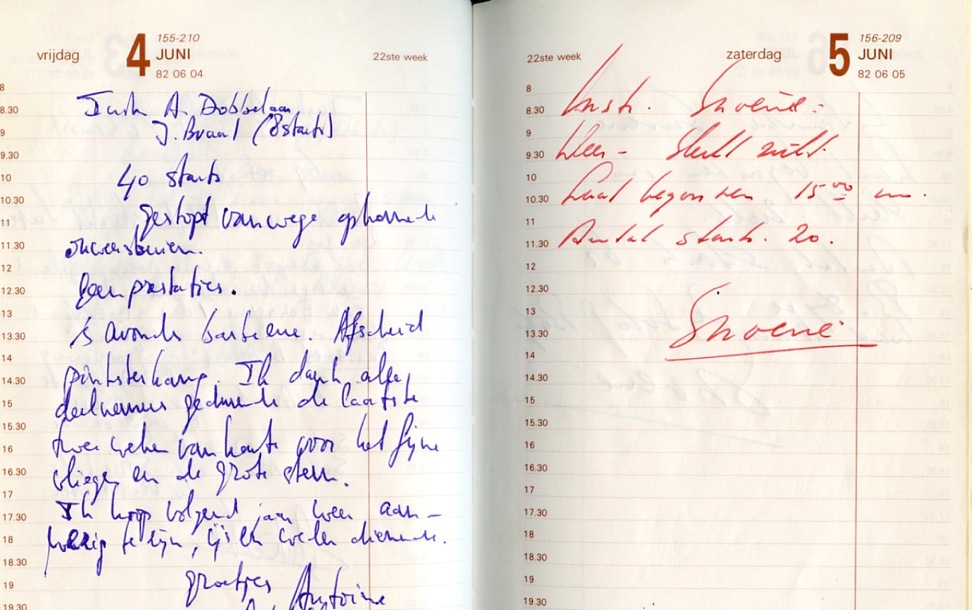 vrijdag 4 JUNI 155-210
82 06 04
22ste week
8
8.30
9
9.30
10
10.30
11
11.30
12
12.30
13
13.30
14
14.30
15
15.30
16
16.30
17
17.30
18
18.30
19
19.30
A. Dobbelaar
J. Braal (8 starts)
40 starts
gestopt vanwege opkomende
onweersbuien.
Geen prestaties.
's avonds barbecue. Afscheid
pinksterkamp. Ik dank alle
deelnemers gedurende de laatste
twee weken van harte voor het fijne
vliegen en de grote steun.
Ik hoop volgend jaar weer aan-
wezig te zijn, dienende.
groetjes
Antoine
22ste week
zaterdag 5 JUNI 156-209
82 06 05
8
8.30
9
9.30
10
10.30
11
11.30
12
12.30
13
13.30
14
14.30
15
15.30
16
16.30
17
17.30
18
18.30
19
19.30
Instr. Snoeré.
Weer - slecht zicht.
Laat begonnen 15 00 uur.
Aantal starts. 20.
Snoeré